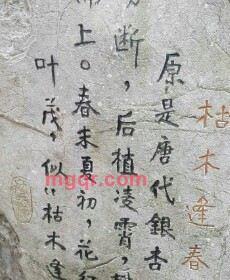 枯木逢春
原是唐代銀杏
断，后植凌霄，
上。春末夏初，花
叶茂，似枯木逢
mgqr.com